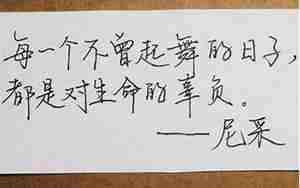 每一个不曾起舞的日子，
都是对生命的辜负。
——尼采